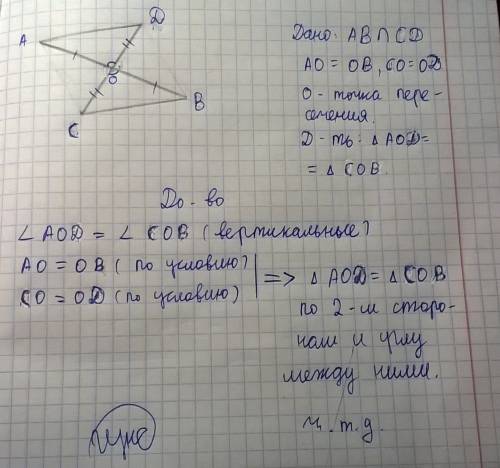 A
D
O
B
C
Дано: AB∩CD
AO = OB, CO = OD
O - точка пере-
сечения.
Д-ть: △ AOD =
= △ COB.
До-во
∠ AOD = ∠ COB (вертикальные)
AO = OB (по условию)
CO = OD (по условию)
=> △ AOD = △ COB
по 2-м сторо-
нам и углу
между ними.
ч.т.д.